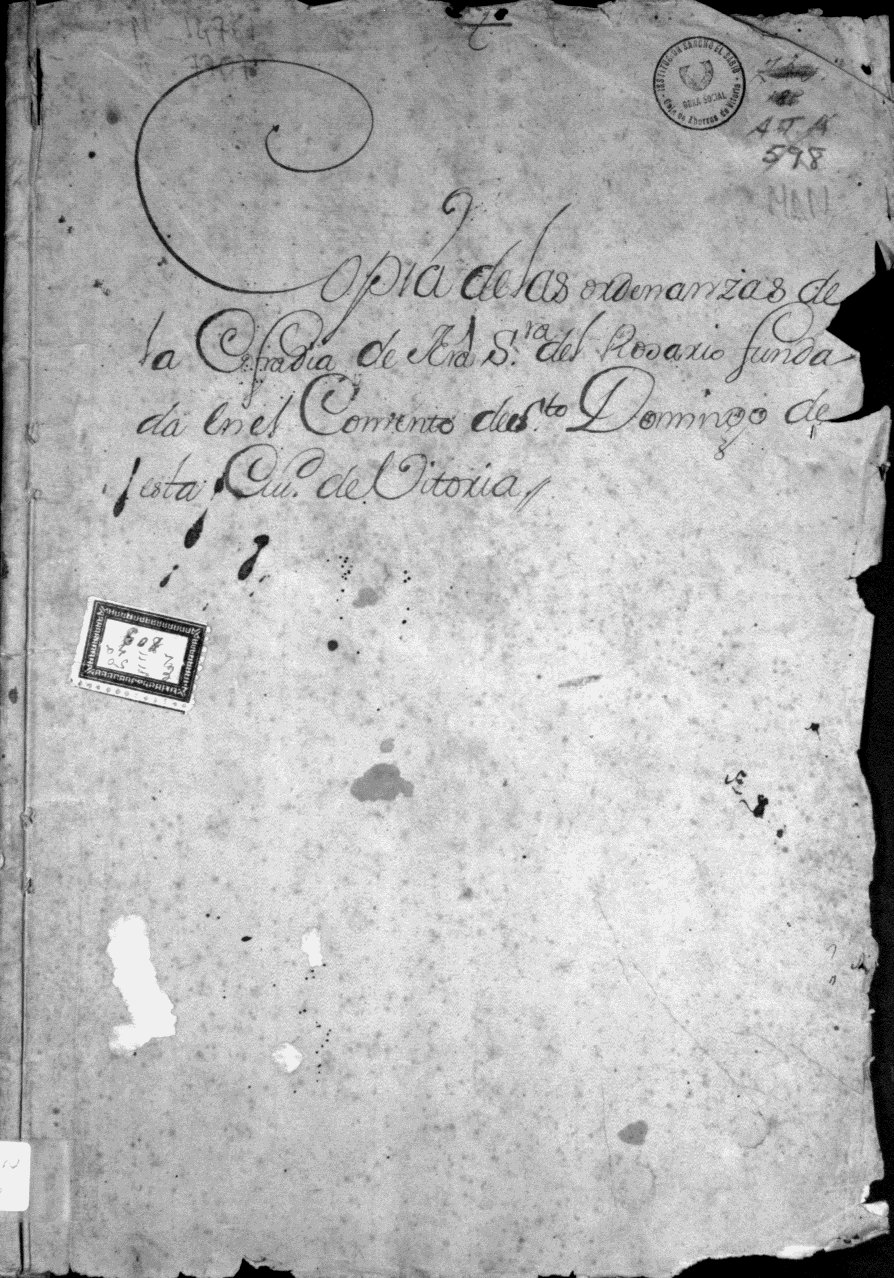 INSTITUCION SANCHO EL SABIO
OBRA SOCIAL
Caja de Ahorros de Vitoria
ATA
598
Copia de las ordenanzas de
la Cofradia de Nrâ S.ra del Rosario funda
da en el Convento de S.to Domingo de
esta Ciu.d de Vitoria,,